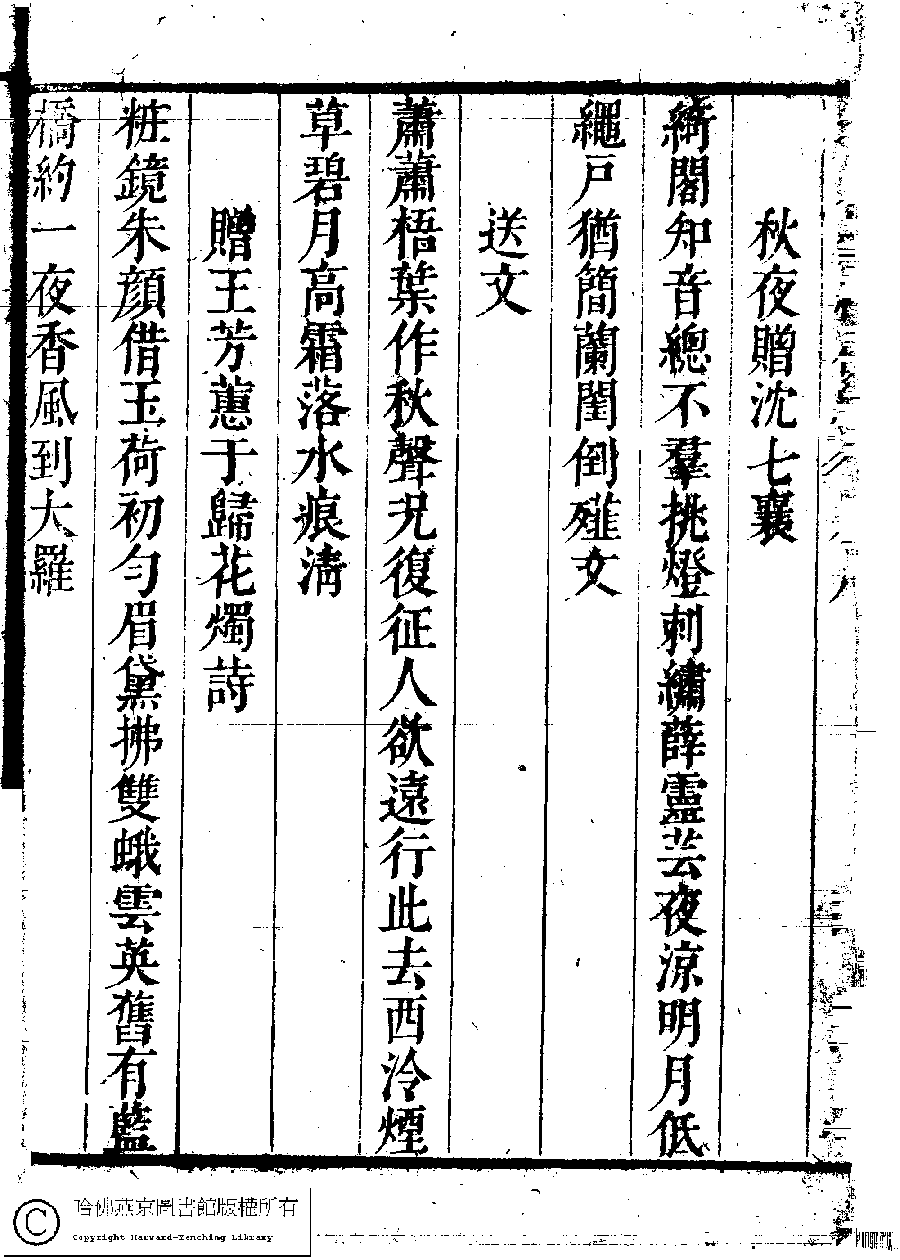 秋夜贈沈七襄
綺閣知音總不羣挑燈刺繡薛靈芸夜涼明月低
繩戸猶簡蘭閨倒薤文
送文
蕭蕭梧葉作秋聲况復征人欲遠行此去西泠煙
草碧月高霜落水痕淸
贈王芳蕙于歸花燭詩
粧鏡朱顔借玉荷初勻眉黛拂雙蛾雲英舊有藍
橋約一夜香風到大羅
哈佛燕京圖書館版權所有
Copyright Harvard-Yenching Library